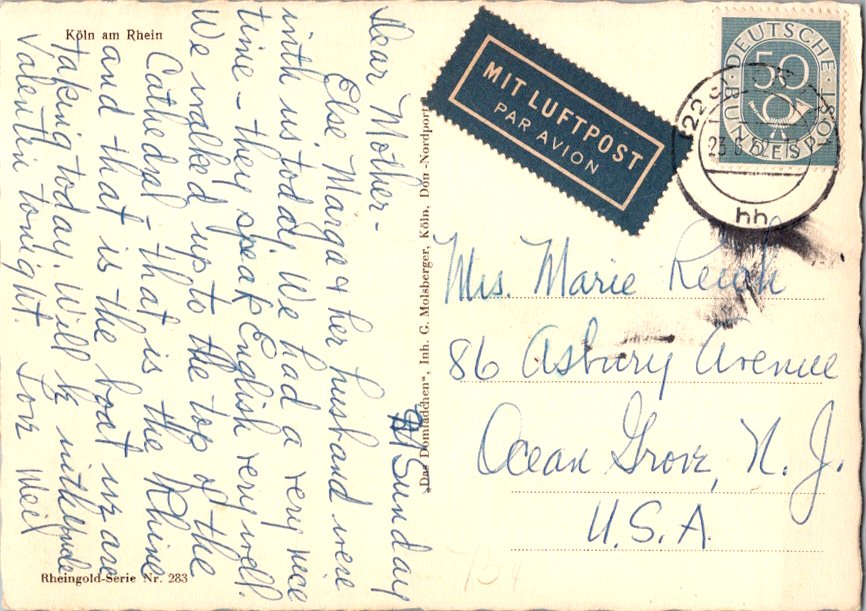 Köln am Rhein
Sunday
Dear Mother -
Else Marga & her husband were
with us today. We had a very nice
time - they speak English very well.
We walked up to the top of the
Cathedral - that is the Rhine
and that is the boat we are
taking today. Will be with
Valentin tonight. Love Neil
Rheingold-Serie Nr. 283
„Das Domlädchen“, Inh. G. Molsberger, Köln, Dom-Nordportal
MIT LUFTPOST
PAR AVION
DEUTSCHE
BUNDESPOST
50
Mrs. Marie
86 Asbury Avenue
Ocean Grove, N. J.
U.S.A.